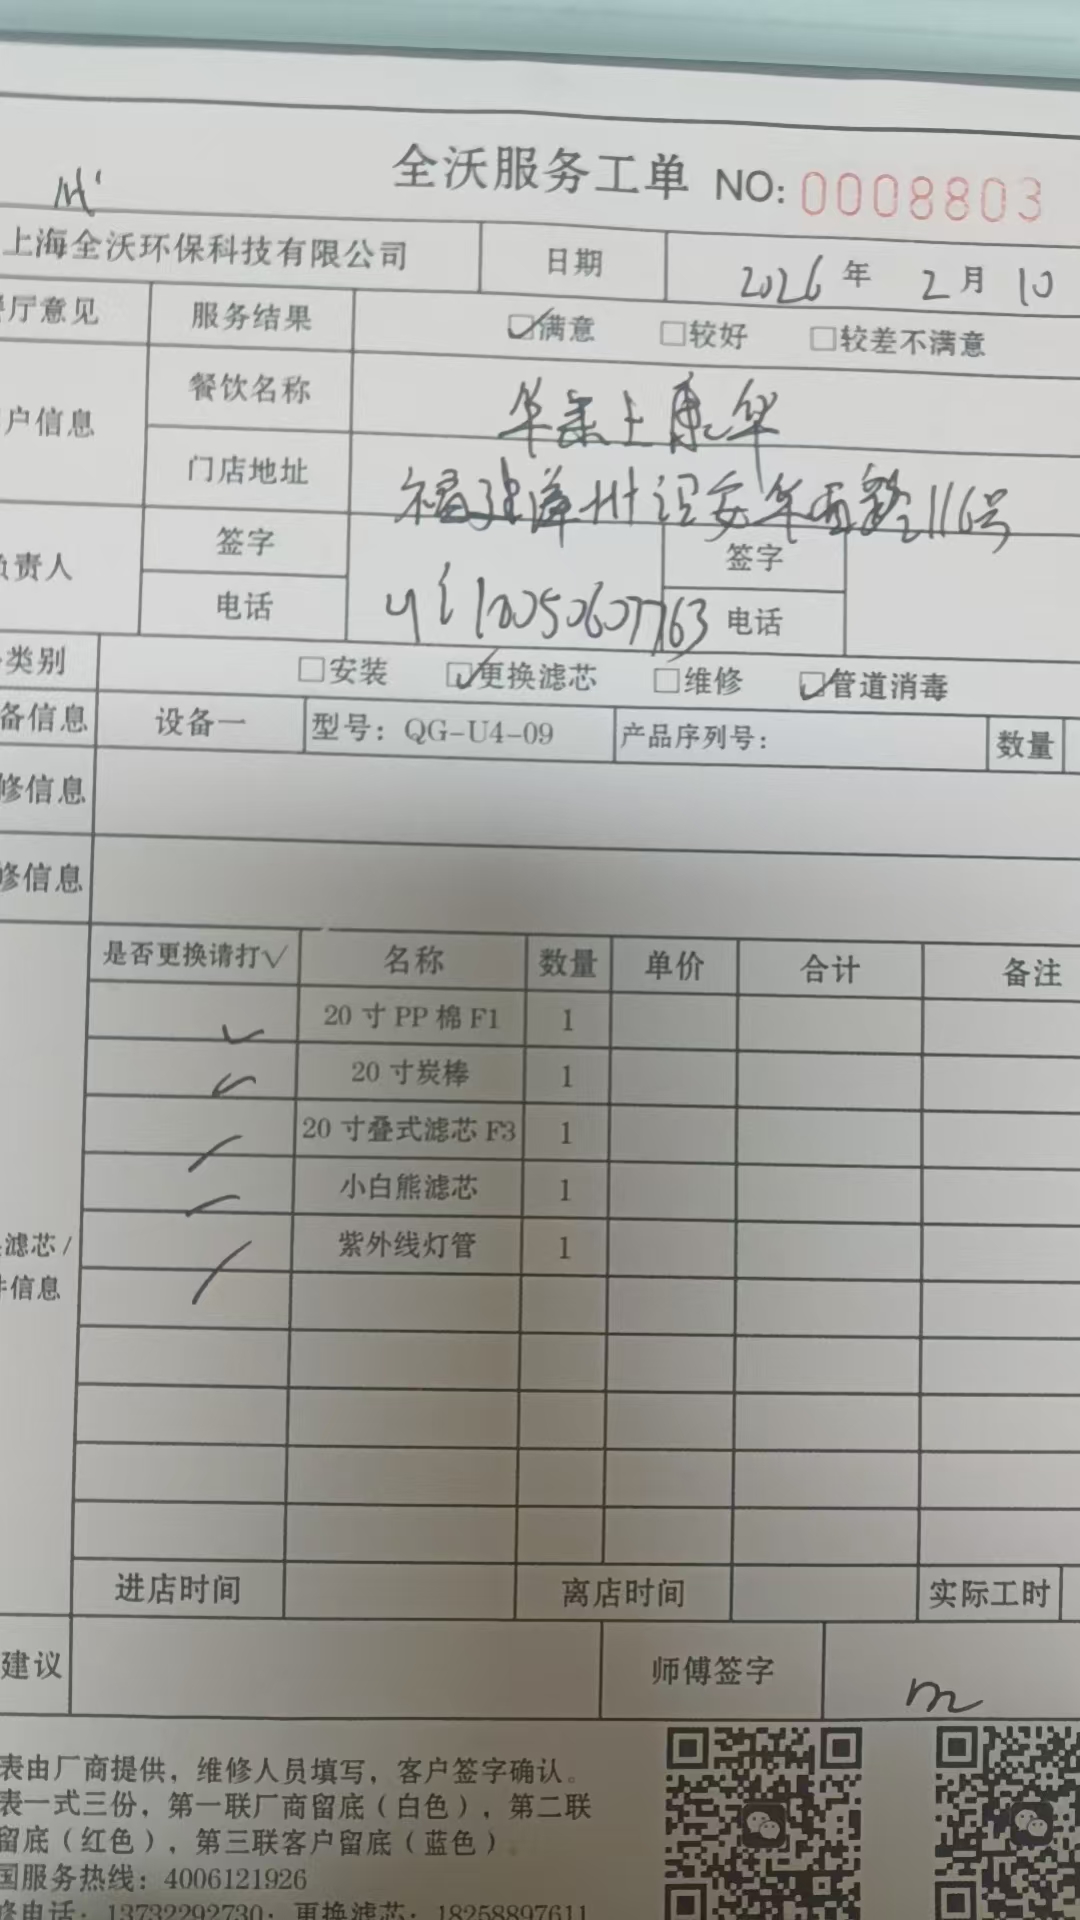 全沃服务工单 NO: 0008803
上海全沃环保科技有限公司 日期 2026年 2月 10
厅意见 服务结果 ☑满意 □较好 □较差不满意
户信息 餐饮名称 华莱士康华
门店地址 福建漳州诏安华西路116号
负责人 签字 签字
电话 电话
类别 □安装 ☑更换滤芯 □维修 ☑管道消毒
备信息 设备一 型号：QG-U4-09 产品序列号： 数量
修信息
修信息
是否更换请打√ 名称 数量 单价 合计 备注
✓ 20寸PP棉F1 1
✓ 20寸炭棒 1
✓ 20寸叠式滤芯F3 1
✓ 小白熊滤芯 1
✓ 紫外线灯管 1
滤芯/
件信息
进店时间 离店时间 实际工时
建议 师傅签字
表由厂商提供，维修人员填写，客户签字确认。
表一式三份，第一联厂商留底（白色），第二联
留底（红色），第三联客户留底（蓝色）
国服务热线：4006121926
修电话：13732292730；更换滤芯：18258897611